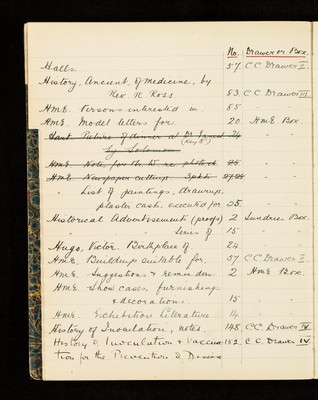 No. Drawer or Box.
Halls. 57. C C Drawer II.
History, Ancient, of medicine, by
Rev. N. Ross. 53. C C Drawer III
H.M.E. Persons interested in. 85 " "
H.M.E. Model letters for. 20. H.M.E. Box.
Picture of dinner at Dr
by Solomon
H.M.E. Note for the 25 " "
H.M.E. Newspaper cuttings
" List of paintings, drawings,
plaster casts. executed for 25. " "
Historical Advertisements (proofs) 2 Sundries Box.
" " Series of 15 " "
Hugo, Victor. Birthplace of. 24. " "
H.M.E. Buildings suitable for. 57 C C Drawer II.
H.M.E. Suggestions & reminders. 2 H.M.E. Box.
H.M.E. Show cases, furnishings
& decorations. 15 " "
H.M.E. Exhibition Literature. 14. " "
History of Inoculation, notes. 148. C.C. Drawer IV
History of Inoculation & Vaccina- 152. C. C. Drawer IV.
tion for the Prevention of Disease